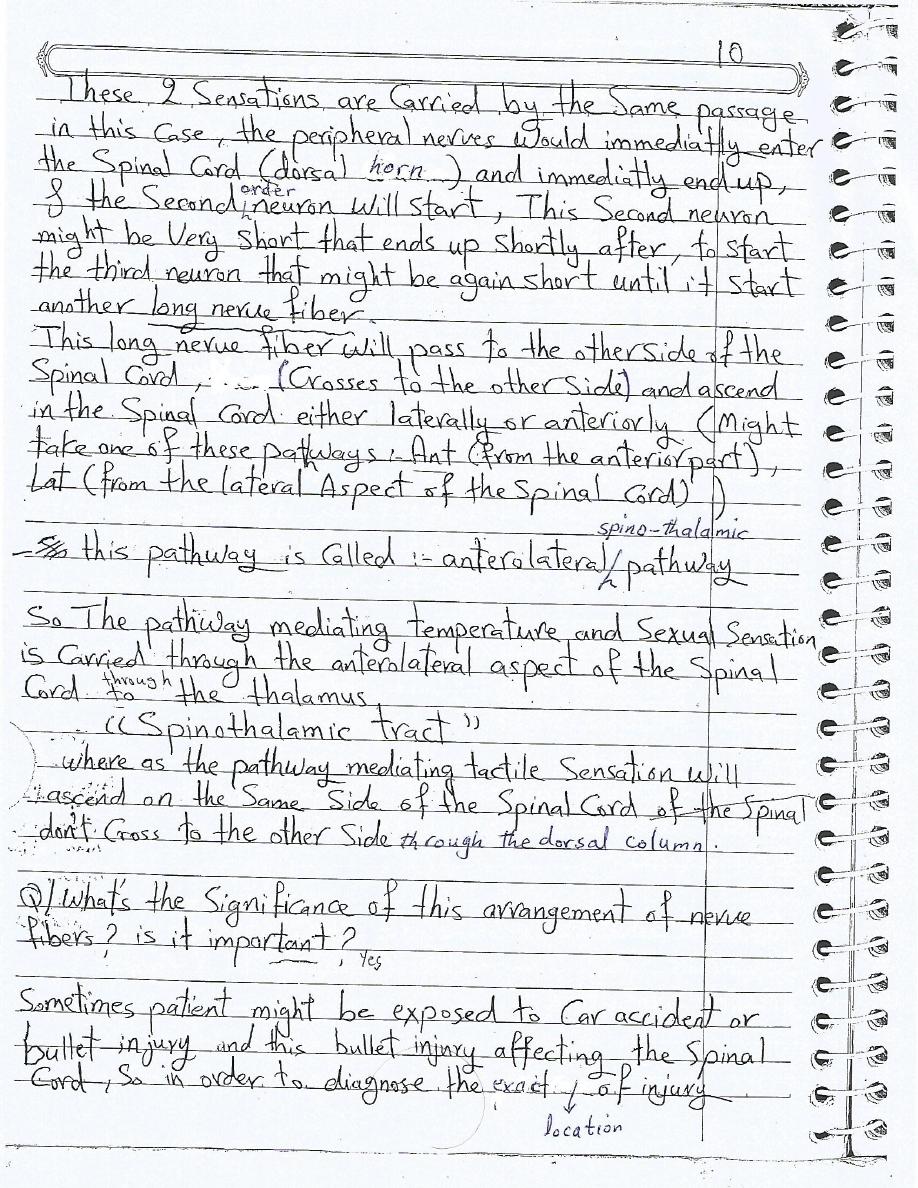 10
These 2 Sensations are Carried by the Same passage
in this Case, the peripheral nerves would immediatly enter
the Spinal Cord (dorsal horn) and immediatly end up,
& the Second order neuron will start, This Second neuron
might be Very short that ends up shortly after, to start
the third neuron that might be again short until it start
another long nerve fiber.
This long nerve fiber will pass to the otherside of the
Spinal Cord, (Crosses to the other Side) and ascend
in the Spinal Cord either laterally or anteriorly (Might
take one of these pathways :- Ant (from the anterior part),
Lat (from the lateral Aspect of the Spinal Cord) )
spino-thalamic
So this pathway is Called :- anterolateral pathway
So The pathway mediating temperature and Sexual Sensation
is Carried through the anterolateral aspect of the Spinal
Cord through to the thalamus
"Spinothalamic tract"
where as the pathway mediating tactile Sensation will
ascend on the Same Side of the Spinal Cord of the Spinal
don't Cross to the other Side through the dorsal column.
Q/ What's the Significance of this arrangement of nerve
fibers? is it important? , Yes
Sometimes patient might be exposed to Car accident or
bullet injury and this bullet injnry affecting the Spinal
Cord, So in order to diagnose the exact of injury
location